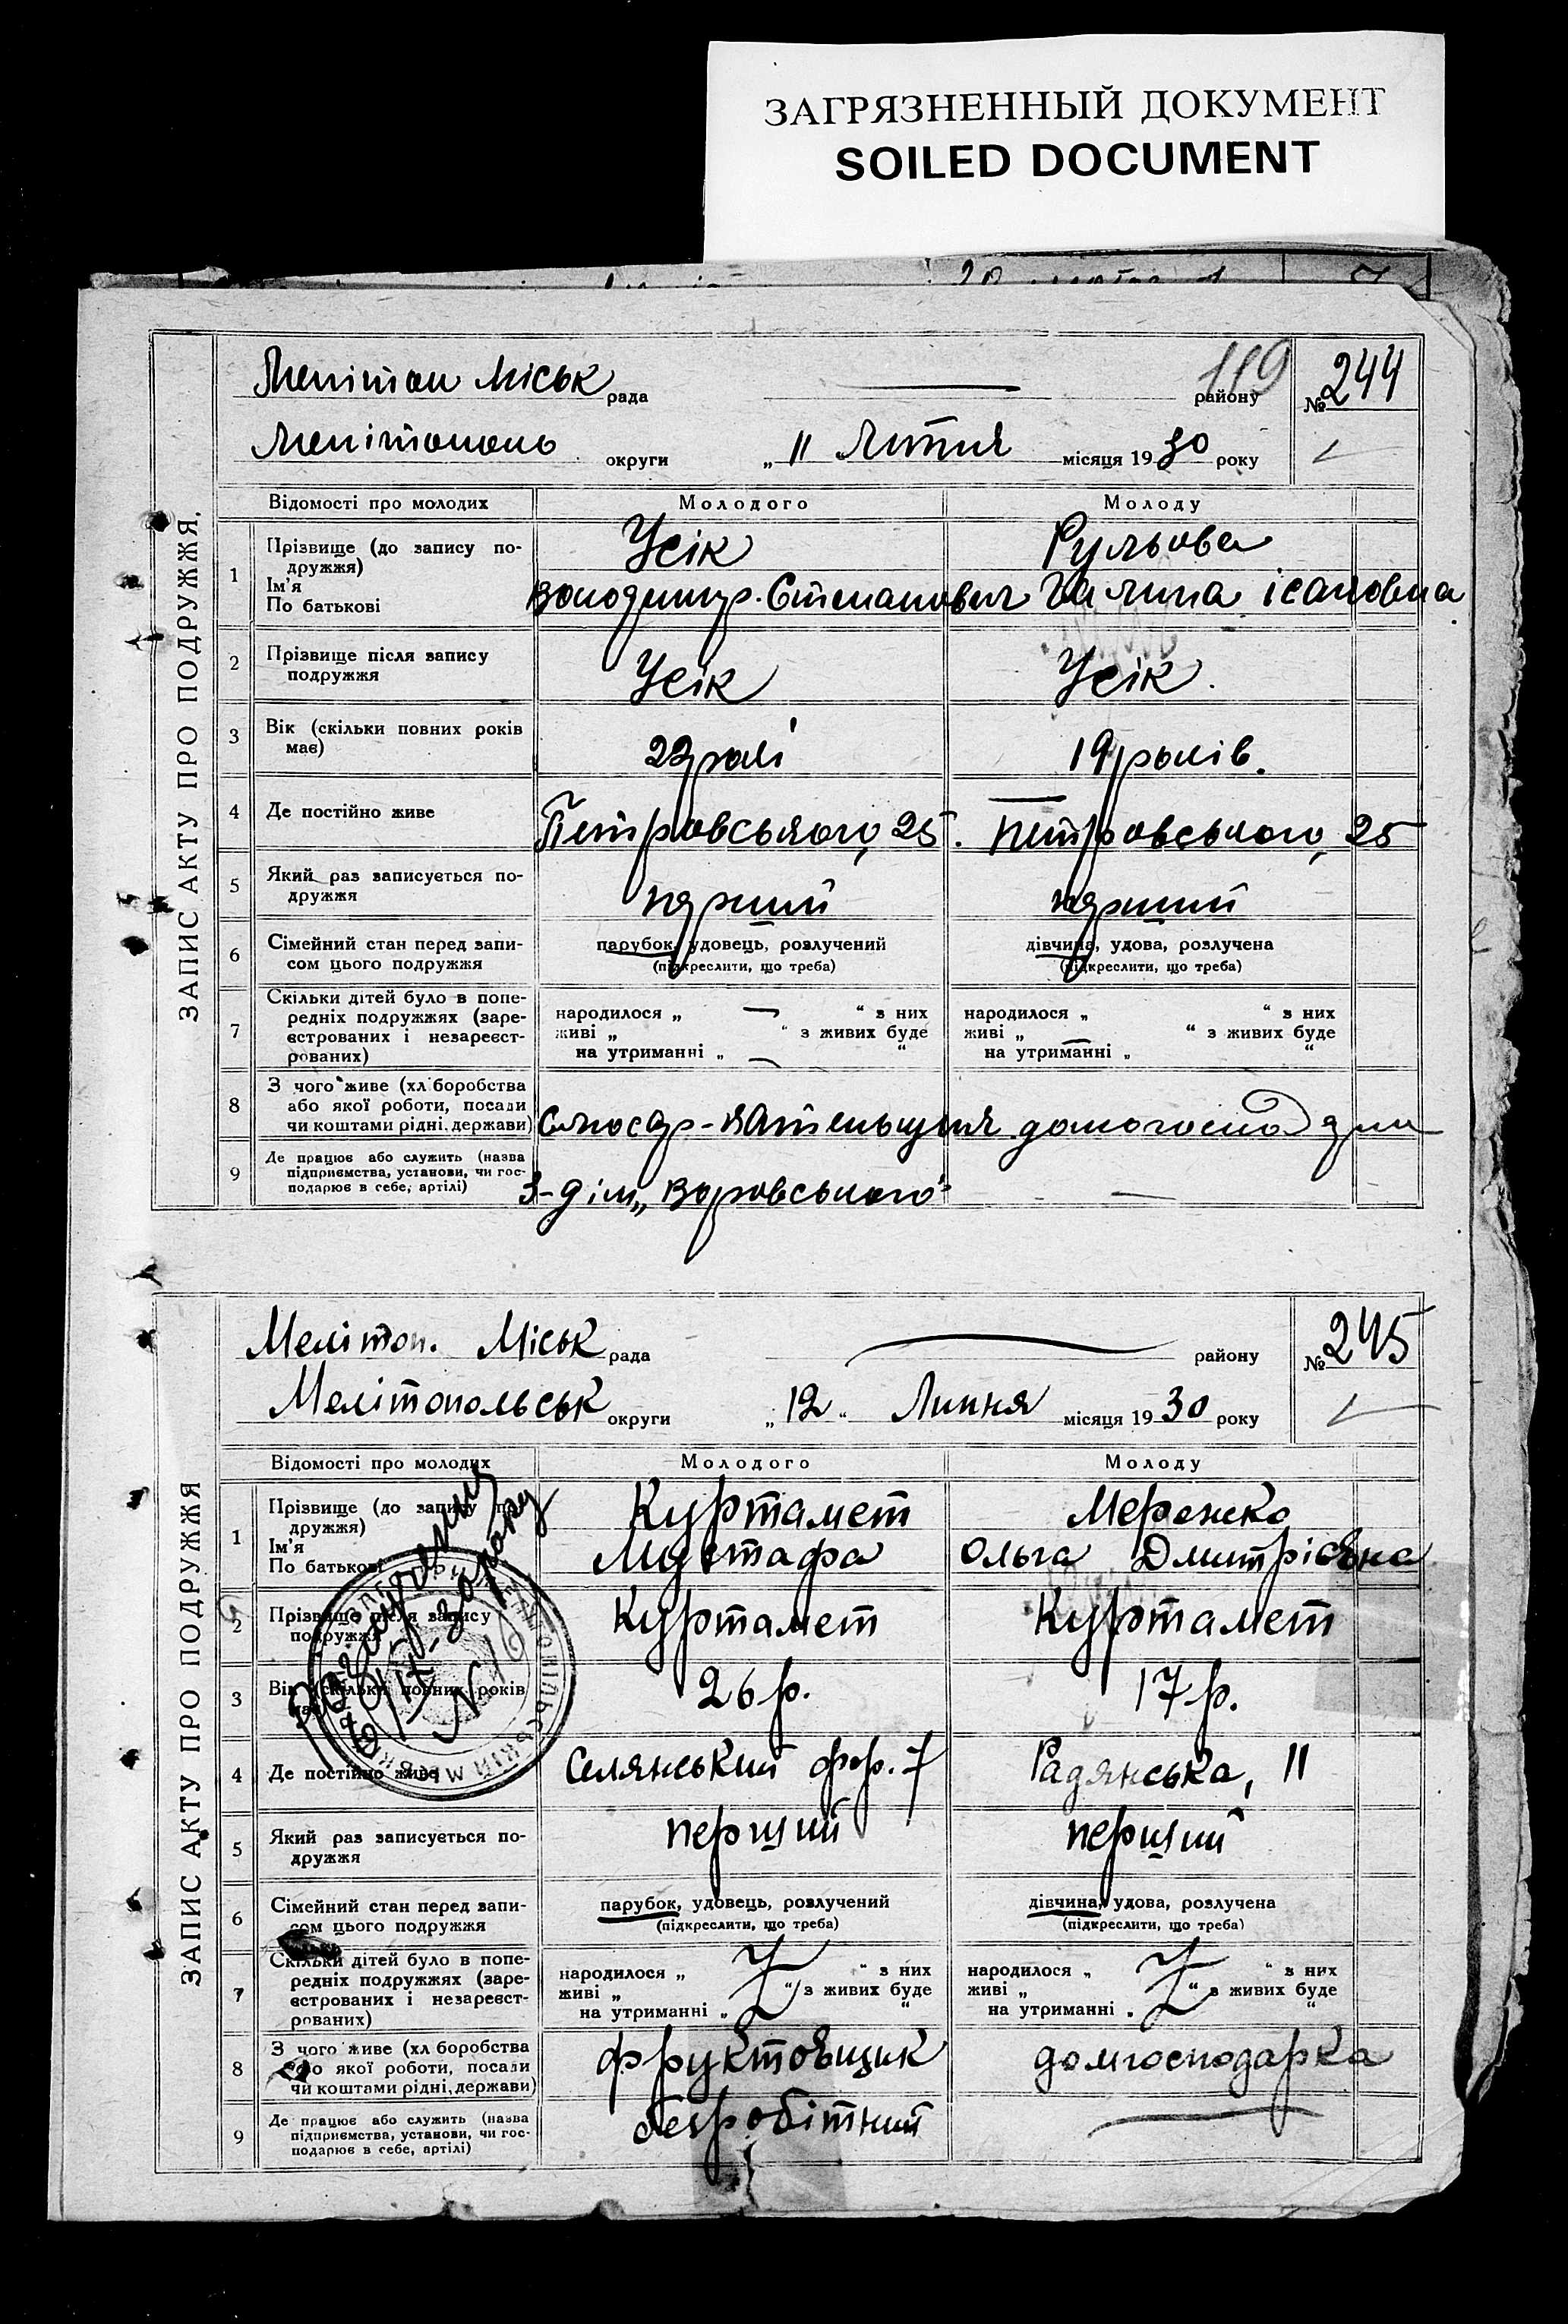 ЗАГРЯЗНЕННЫЙ ДОКУМЕНТ
SOILED DOCUMENT
ЗАПИС АКТУ ПРО ПОДРУЖЖЯ.
Меліт Міськ рада району 119 № 244
округи „ 11 місяця 19 30 року
Відомості про молодих Молодого Молоду
1 Прізвище (до запису по-
дружжя)
Ім'я
По батькові
Усік Рульова
Володимир. Степанович Галина Ісаковна
2 Прізвище після запису
подружжя
Усік Усік.
3 Вік (скільки повних років
має)
19 років.
4 Де постійно живе
Петровського, 25. Петровського, 25
5 Який раз записується по-
дружжя
перший перший
6 Сімейний стан перед запи-
сом цього подружжя
парубок, удовець, розлучений
(підкреслити, що треба)
дівчина, удова, розлучена
(підкреслити, що треба)
7 Скільки дітей було в попе-
редніх подружжях (заре-
єстрованих і незареєст-
рованих)
народилося „ — “ з них
живі „ “ з живих буде
на утриманні „ — “
народилося „ “ з них
живі „ “ з живих буде
на утриманні „ — “
8 З чого живе (хліборобства
або якої роботи, посади
чи коштами рідні, держави)
Слюсар-
9 Де працює або служить (назва
підприємства, установи, чи гос-
подарює в себе, артілі)
„Воровського“ —
ЗАПИС АКТУ ПРО ПОДРУЖЖЯ
Мелітоп. Міськ рада району № 245
Мелітопольськ округи „ 12 “ Липня місяця 19 30 року
Відомості про молодих Молодого Молоду
1 Прізвище (до запису по-
дружжя)
Ім'я
По батькові
Куртамет
Мустафа Ольга Дмитрієвна
2 Прізвище після запису
подружжя
Куртамет Куртамет
3 Вік (скільки повних років
має)
26 р. 17 р.
4 Де постійно живе
Селянський 7 Радянська, 11
5 Який раз записується по-
дружжя
перший перший
6 Сімейний стан перед запи-
сом цього подружжя
парубок, удовець, розлучений
(підкреслити, що треба)
дівчина, удова, розлучена
(підкреслити, що треба)
7 Скільки дітей було в попе-
редніх подружжях (заре-
єстрованих і незареєст-
рованих)
народилося „ “ з них
живі „ “ з живих буде
на утриманні „ “
народилося „ “ з них
живі „ “ з живих буде
на утриманні „ “
8 З чого живе (хліборобства
або якої роботи, посади
чи коштами рідні, держави)
фруктовщик домгосподарка
9 Де працює або служить (назва
підприємства, установи, чи гос-
подарює в себе, артілі)
безробітний